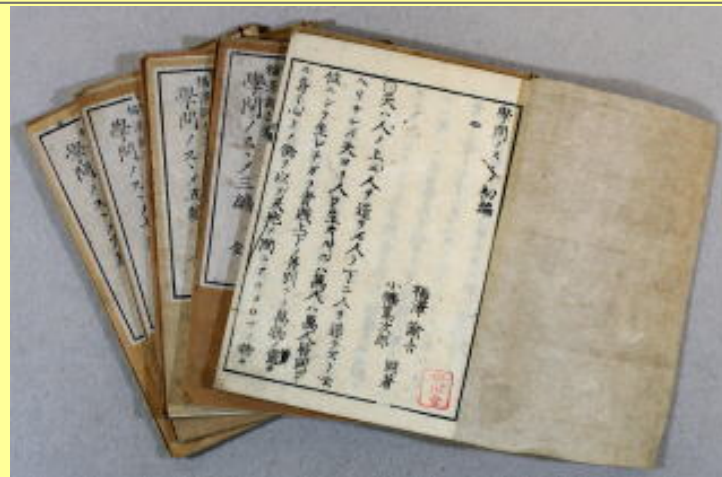 學問ノスヽメ 初編
福澤諭吉
小幡篤次郎 同著
天ハ人ノ上ニ人ヲ造ラズ人ノ下ニ人ヲ造ラズト云
ヘリサレバ天ヨリ人ヲ生ズルニハ萬人ハ萬人皆同ジ
位ニシテ生レナガラ貴賤上下ノ差別ナク萬物ノ靈タ
ル身ト心トノ働ヲ以テ天地ノ間ニアルヨロヅノ物ヲ
學問ノスヽメ三編 全
學問ノスヽメ
學問ノスヽメ
學問ノスヽメ